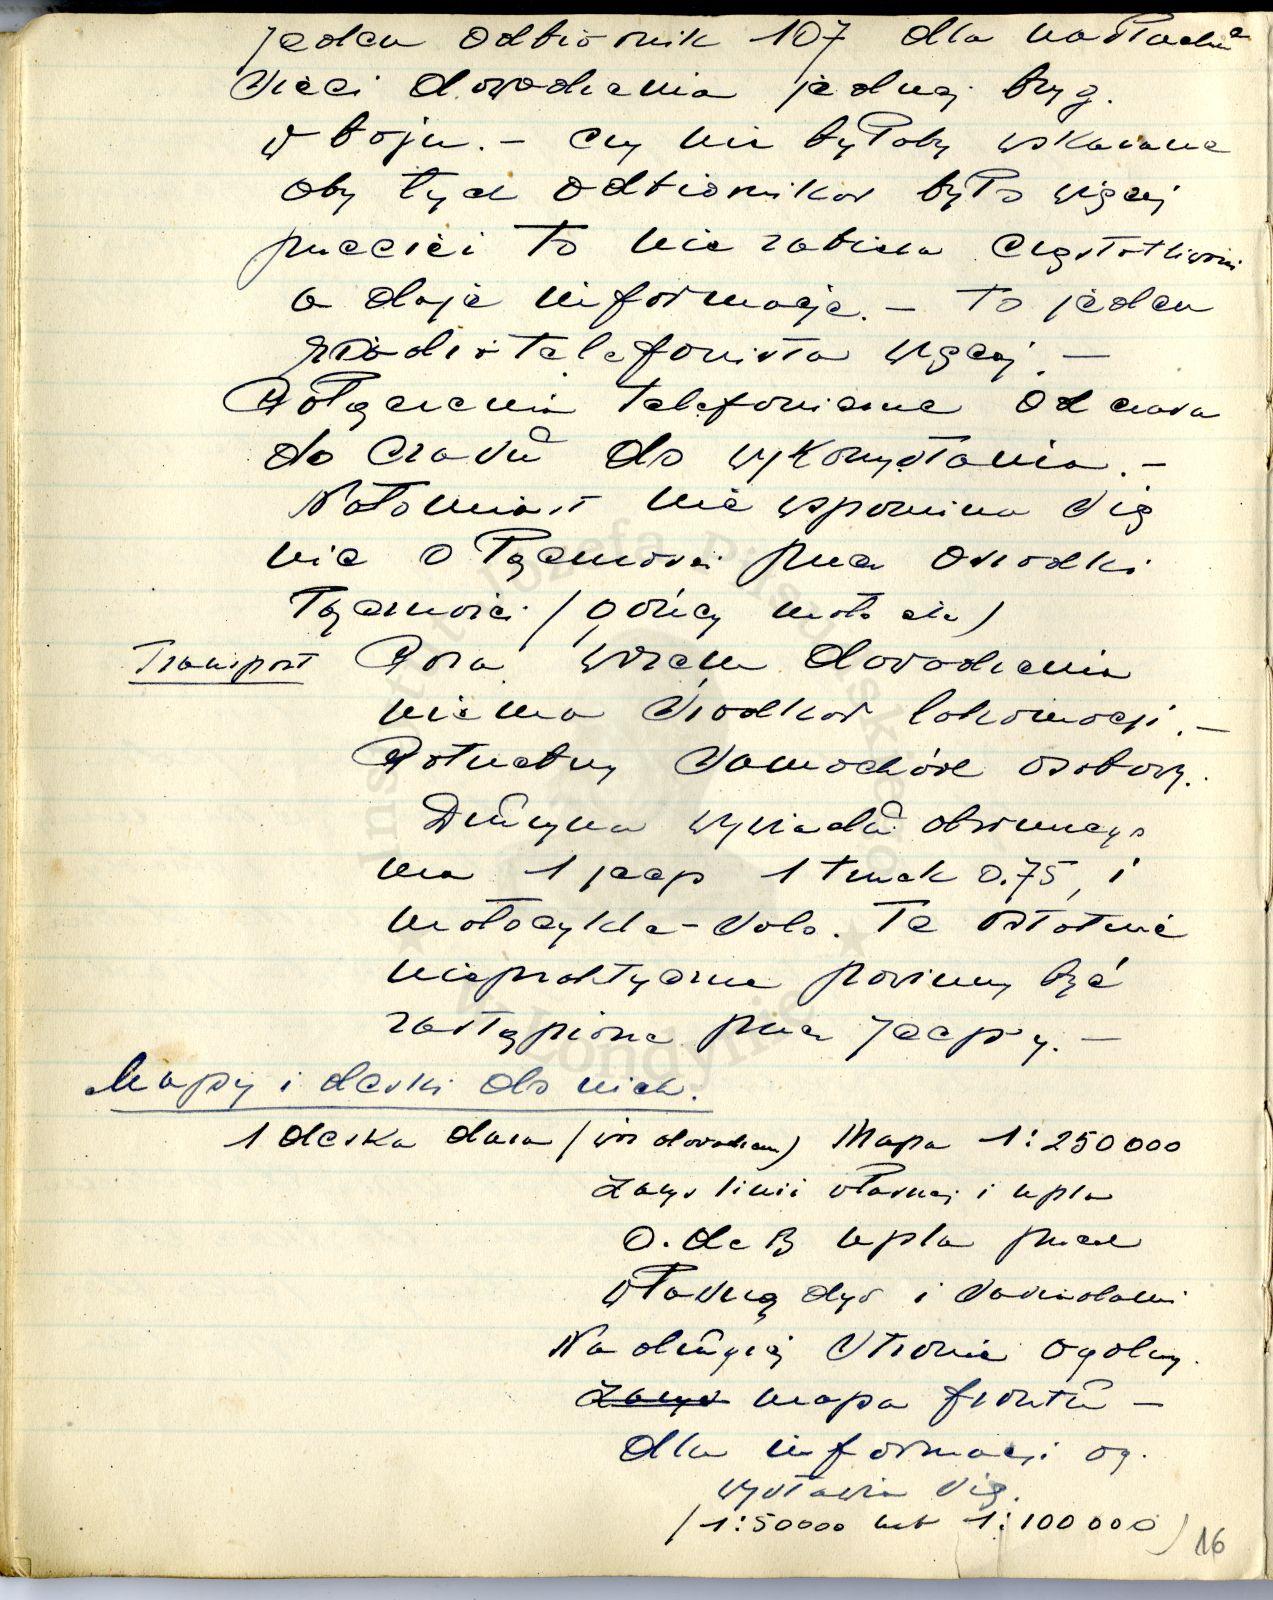 jeden odbiornik 107 dla nasłuchu
sieci dowodzenia jednej bryg.
w boju. – Czy nie byłoby wskazane
aby tych odbiorników było więcej
przecież to nie zabiera częstotliwości
a daje informacje. – To jeden
radiotelefonista więcej. –
Połączenia telefoniczne od czasu
do czasu do wykorzystania. –
Natomiast nie wspomina się
nic o łączności przez ośrodki
łączności / gońcy moto etc)
Transport Poza wozem dowodzenia
niema środków lokomocji. –
Potrzebny samochód osobowy.
Drużyna wywiadu obronnego
ma 1 jeep 1 truck 0.75, i
motocykle – solo. Te ostatnie
niepraktyczne powinny być
zastąpione przez jeep'y. –
Mapy i deski do nich.
1 deska duża (wóz dowodzen) Mapa 1:250000
Zarys linii własnej i npla
O. de B npla przed
własną dyw i sąsiadami
Na drugiej stronie ogólny
zarys mapa frontu –
dla informacji og.
wystawia się.
/ 1:50000 lub 1:100000 )
16
Instytut Józefa Piłsudskiego
w Londynie